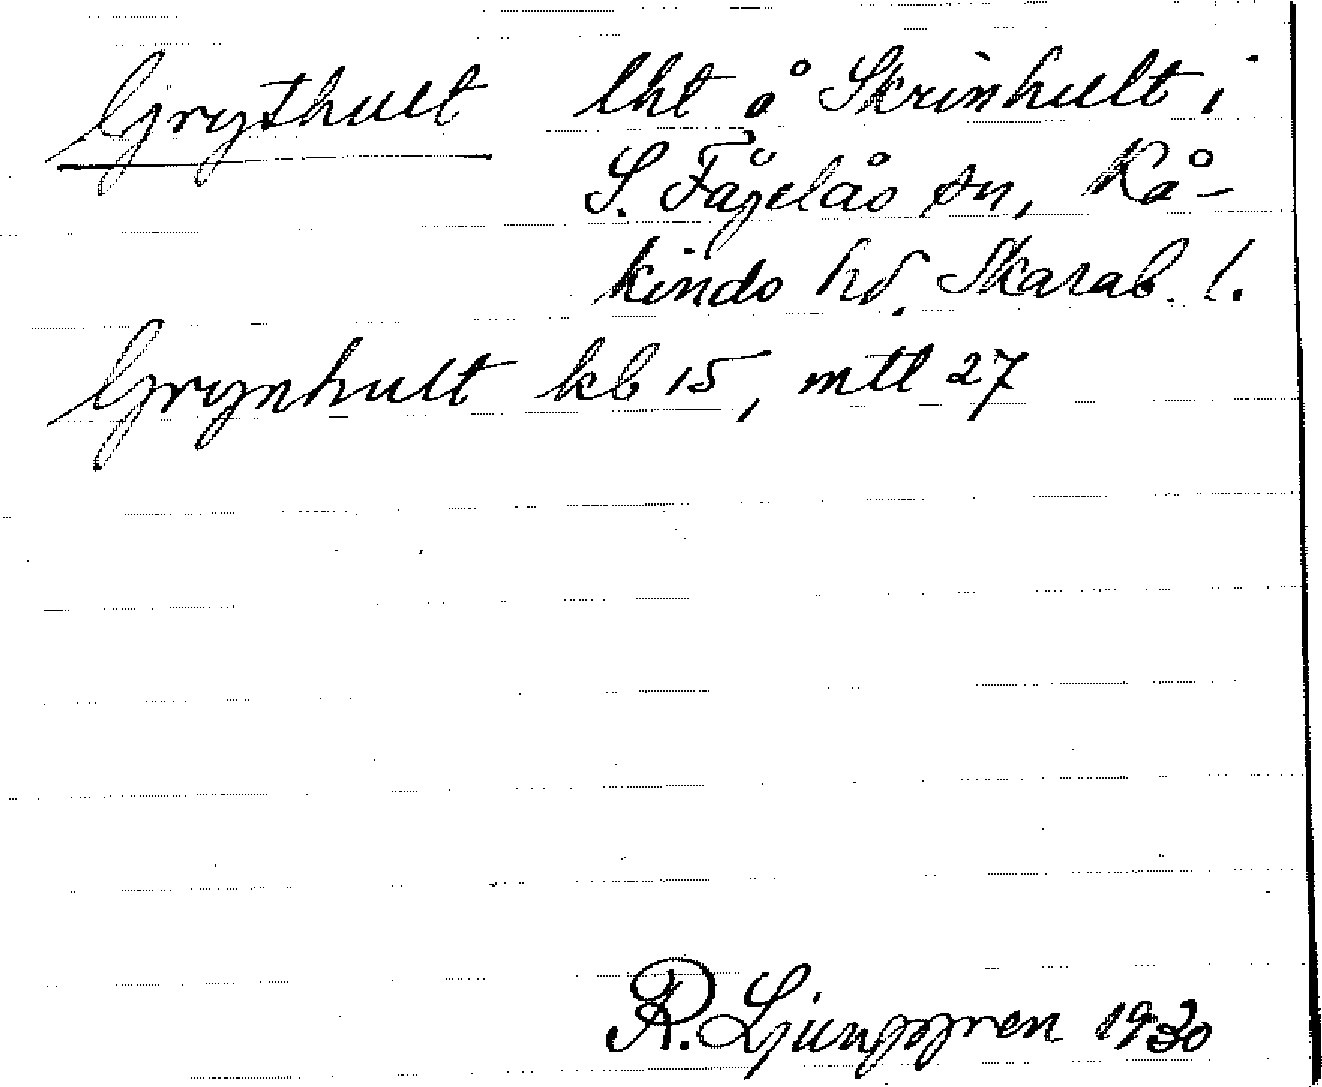 Grythult lht å Skrinhult i
S. Fågelås sn, Kå-
kindo hd. Skarab. l.
Grynhult kb 15, mtl 27
R. Ljunggren 1930